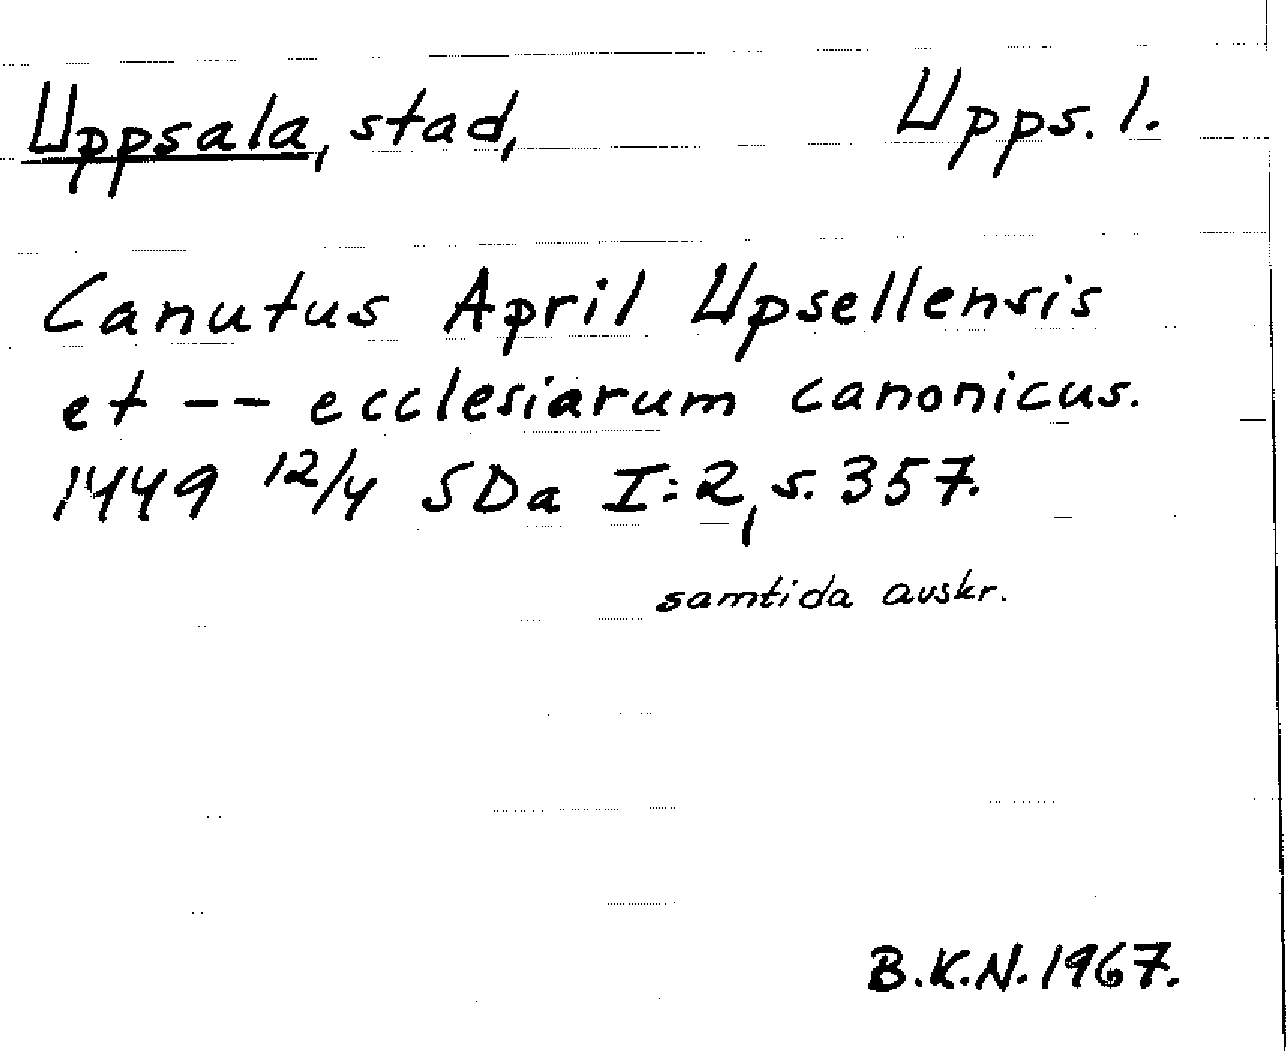 Uppsala, stad, Upps. l.
Canutus April Upsellensis
et -- ecclesiarum canonicus.
1449 12/4 SDa I:2, s. 357.
samtida avskr.
B.K.N. 1967.